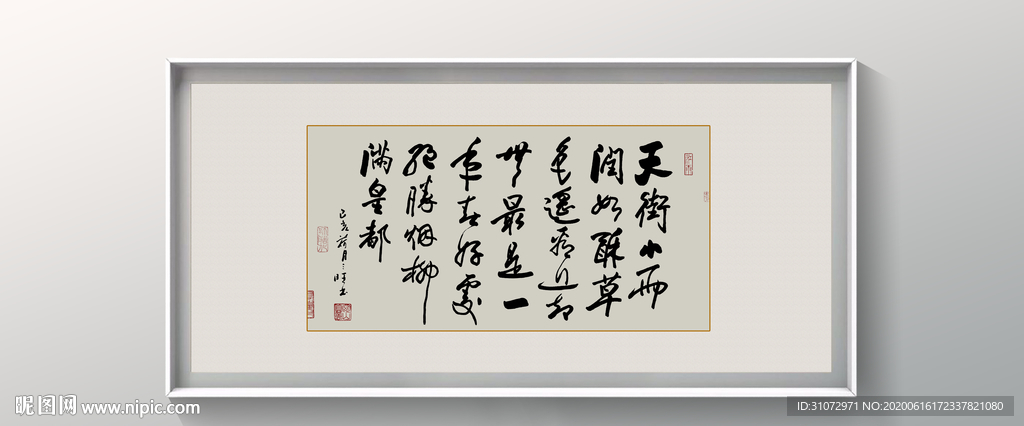 天街小雨
潤如酥草
色遥看近却
無最是一
年春好處
絶勝烟柳
滿皇都
己亥荷月
昵图网 www.nipic.com
ID:31072971 NO:20200616172337821080